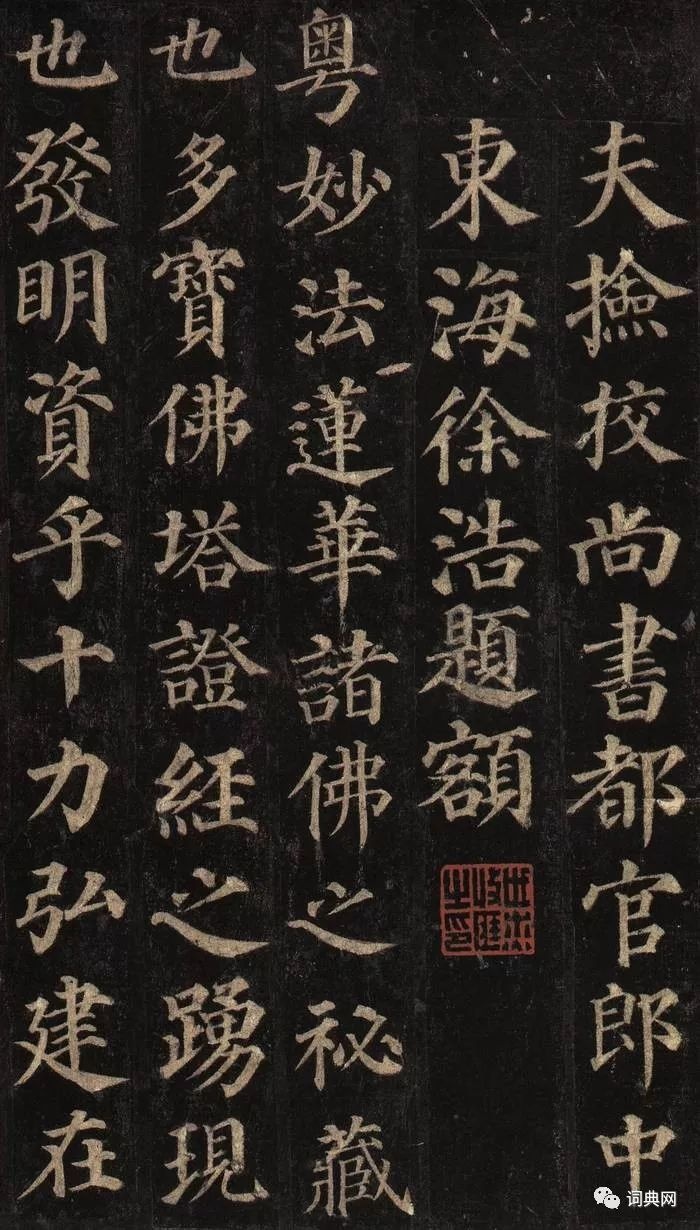 夫撿挍尚書都官郎中
東海徐浩題額
粵妙法蓮華諸佛之祕藏
也多寶佛塔證經之踴現
也發明資乎十力弘建在
词典网